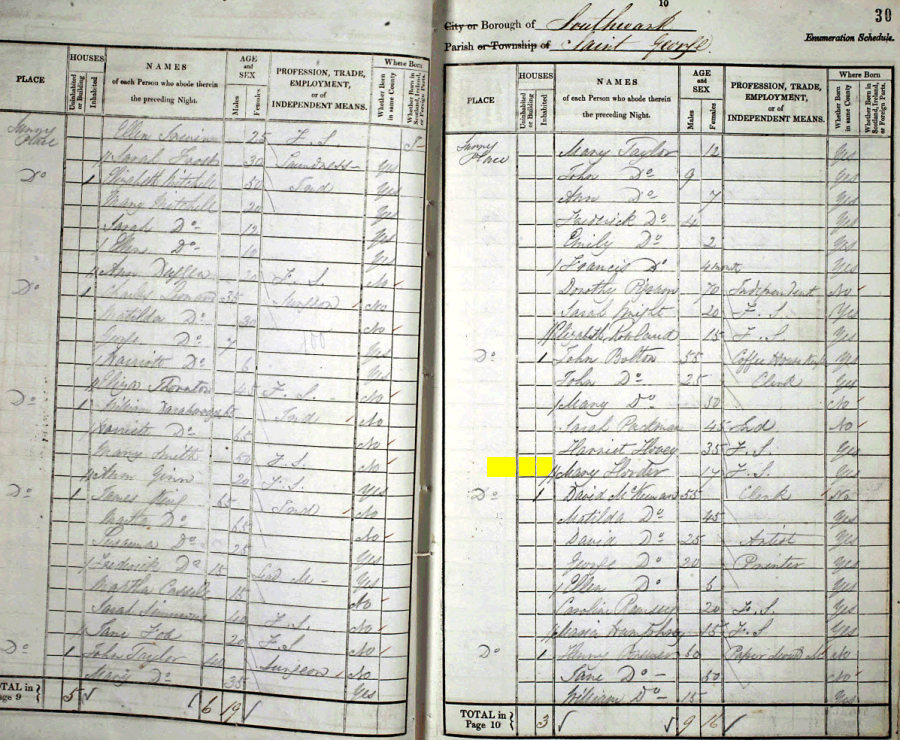 PLACE
HOUSES
Uninhabited or Building
Inhabited
NAMES
of each Person who abode therein
the preceding Night.
AGE
and
SEX
Males
Females
PROFESSION, TRADE,
EMPLOYMENT,
or of
INDEPENDENT MEANS.
Where Born
Whether Born in same County
Whether Born in Scotland, Ireland, or Foreign Parts.
Place Ellen 25 F. S
Sarah 30 Laundress Yes
Do 1 Elizabeth Mitchell 50 Ind Yes
Mary Mitchell 20 Yes
Sarah Do 12 Yes
Ellen Do 10 Yes
Ann 20 F. S No
Do 1 Charles 35 Surgeon No
Matilda Do 30 No
George Do 7 Yes
Harriett Do 6 Yes
Eliza Thornton 45 F. S. No
Do 1 William Ind No
Harriett Do 65 No
Mary Smith 50 F. S. No
Ann Ginn 20 F. S. Yes
Do 1 James 65 Ind No
Martha Do 65 No
Susanna Do 25 Yes
Frederick Do 15 Yes
Martha 15 No
Sarah 40 F. S. No
Jane Fox 20 F. S No
Do 1 John Taylor 40 Surgeon No
Mary Do 35 Yes
TOTAL in
Page 9
5 6 19
10
30
City or Borough of Southwark
Parish or Township of Saint George
Enumeration Schedule.
PLACE
HOUSES
Uninhabited or Building
Inhabited
NAMES
of each Person who abode therein
the preceding Night.
AGE
and
SEX
Males
Females
PROFESSION, TRADE,
EMPLOYMENT,
or of
INDEPENDENT MEANS.
Where Born
Whether Born in same County
Whether Born in Scotland, Ireland, or Foreign Parts.
Place Mary Taylor 12 Yes
John Do 9 Yes
Ann Do 7 Yes
Frederick Do 4 Yes
Emily Do 2 Yes
Francis Do 4 month Yes
Dorothy 70 Independent No
Sarah Wright 20 F. S Yes
Elizabeth Rowland 15 F. S Yes
Do 1 John Bolton 55 Coffee House Yes
John Do 25 Clerk Yes
Mary Do 50 No
Sarah Padman 45 Ind No
Harriet 35 F. S Yes
Mary Horder 17 F. S Yes
Do 1 David 55 Clerk No
Matilda Do 45 Yes
David Do 25 Artist Yes
George Do 20 Printer Yes
Ellen Do 6 Yes
Caroline 20 F. S Yes
Maria Humphrey 15 F. S Yes
Do 1 Henry 50 Paper No
Jane Do 50 No
William Do 15 Yes
TOTAL in
Page 10
3 9 16